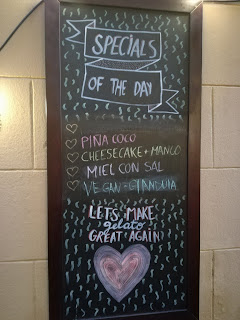 SPECIALS
OF THE DAY
PIÑA COCO
CHEESECAKE + MANGO
MIEL CON SAL
VEGAN - GIANDUIA
LETS MAKE
gelato
GREAT AGAIN